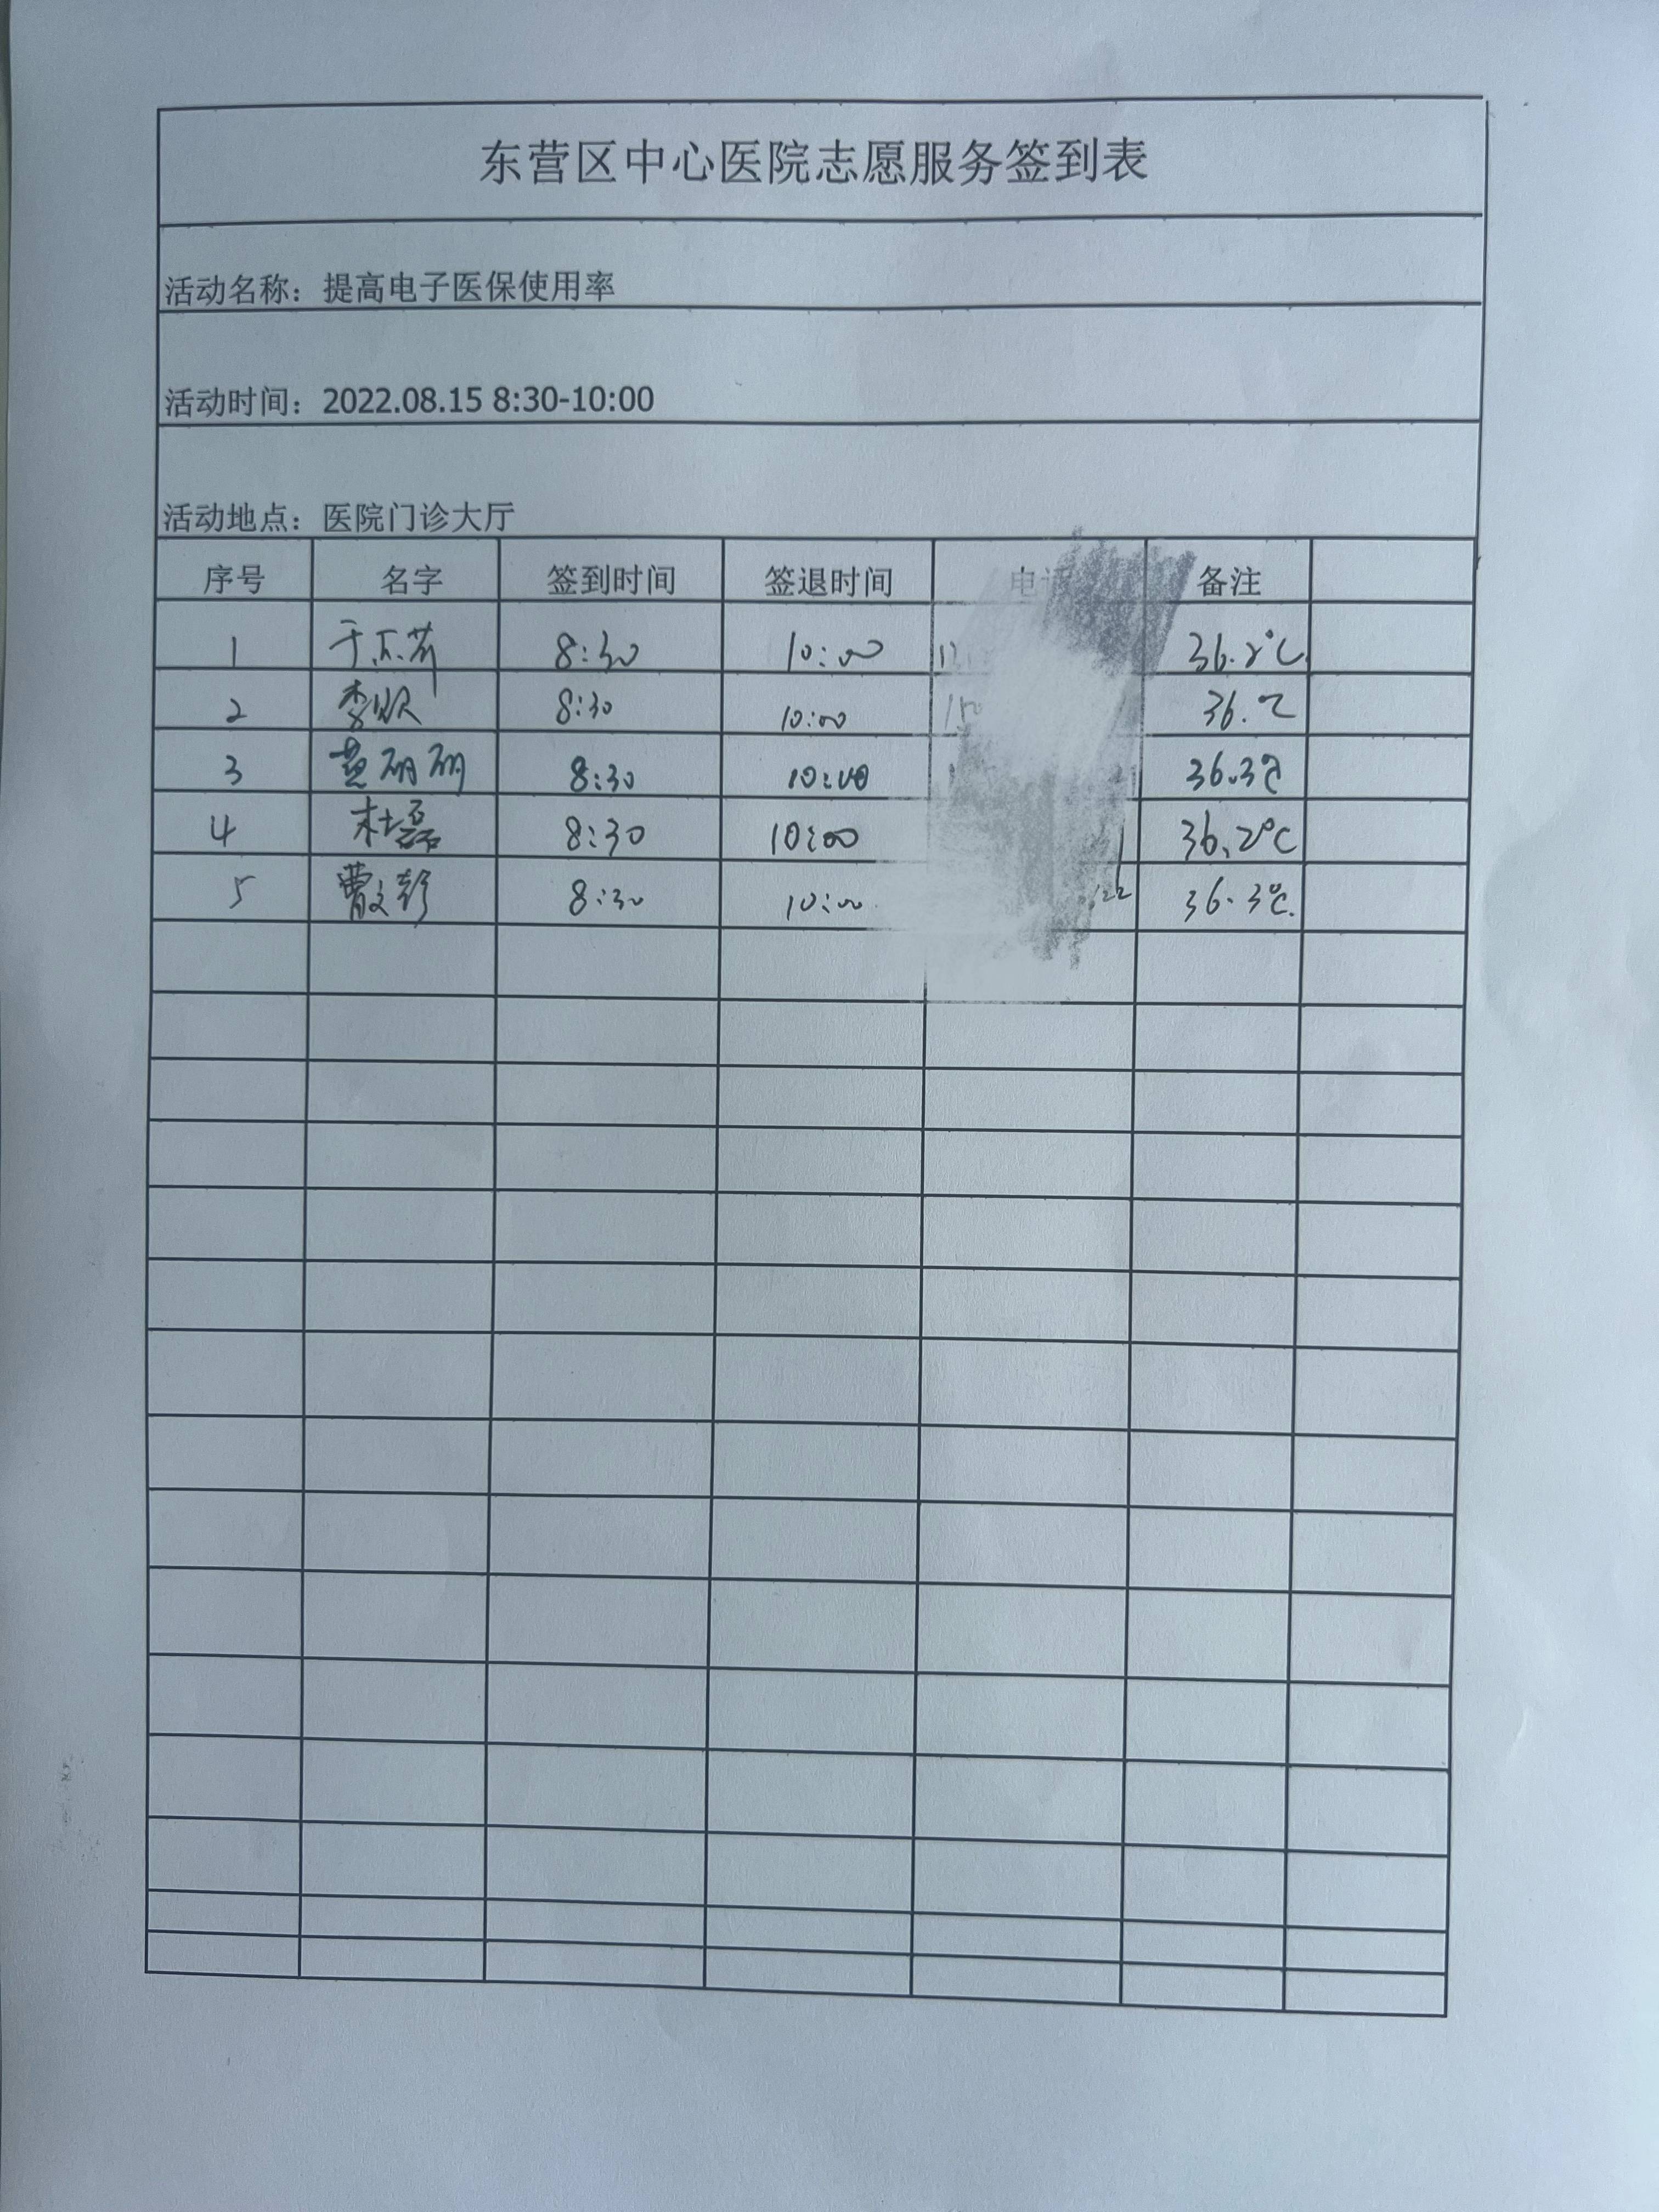 东营区中心医院志愿服务签到表
活动名称：提高电子医保使用率
活动时间：2022.08.15 8:30-10:00
活动地点：医院门诊大厅
序号 名字 签到时间 签退时间 电 备注
1 8:30 10:00 36.2℃
2 8:30 10:00 36.℃
3 黄丽丽 8:30 10:00 36.3℃
4 杜磊 8:30 10:00 36.2℃
5 曹文彭 8:30 10:00 36.3℃